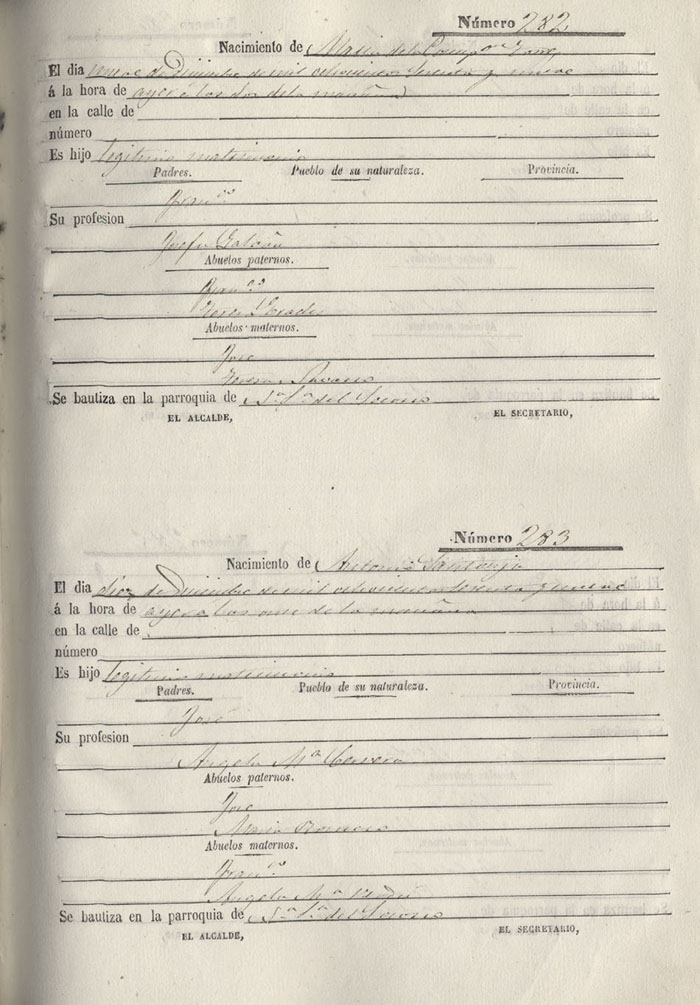 Número 282
Nacimiento de Maria de la
El dia nueve de Diciembre de mil ochocientos sesenta y nueve
á la hora de ayer a las dos de la mañana
en la calle de
número
Es hijo legitimo matrimonio
Padres. Pueblo de su naturaleza. Provincia.
Fran.co
Su profesion
Josefa Galvañ
Abuelos paternos.
Fran.co
Abuelos maternos.
Jose
Teresa
Se bautiza en la parroquia de N.ª S.ª del Socorro
EL ALCALDE, EL SECRETARIO,
Número 283
Nacimiento de Antonio Santonja
El dia diez de Diciembre de mil ochocientos sesenta y nueve
á la hora de ayer a las once de la mañana
en la calle de
número
Es hijo legitimo matrimonio
Padres. Pueblo de su naturaleza. Provincia.
José
Su profesion
Angela Mª
Abuelos paternos.
Jose
Maria Romero
Abuelos maternos.
Fran.co
Angela Mª
Se bautiza en la parroquia de N.ª S.ª del Socorro
EL ALCALDE, EL SECRETARIO,